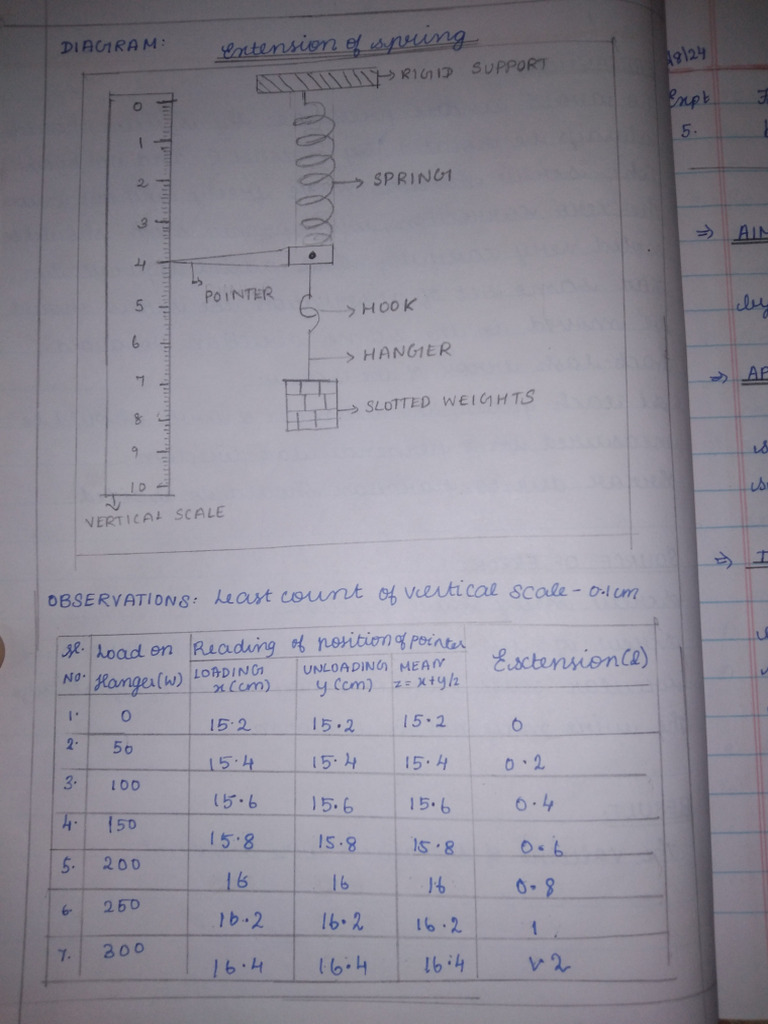 DIAGRAM: Extension of spring
RIGID SUPPORT
0
1
SPRING
2
3
4
POINTER
5
HOOK
6
HANGER
7
SLOTTED WEIGHTS
8
9
10
VERTICAL SCALE
OBSERVATIONS: Least count of vertical scale - 0.1cm
Sl. No. Load on Hanger(W) Reading of position of pointer Extension(l)
LOADING x(cm) UNLOADING y(cm) MEAN z = x+y/2
1. 0 15.2 15.2 15.2 0
2. 50 15.4 15.4 15.4 0.2
3. 100 15.6 15.6 15.6 0.4
4. 150 15.8 15.8 15.8 0.6
5. 200 16 16 16 0.8
6 250 16.2 16.2 16.2 1
7. 300 16.4 16.4 16.4
8/24
Expt
5.
⇒ AIM
⇒ AP
⇒